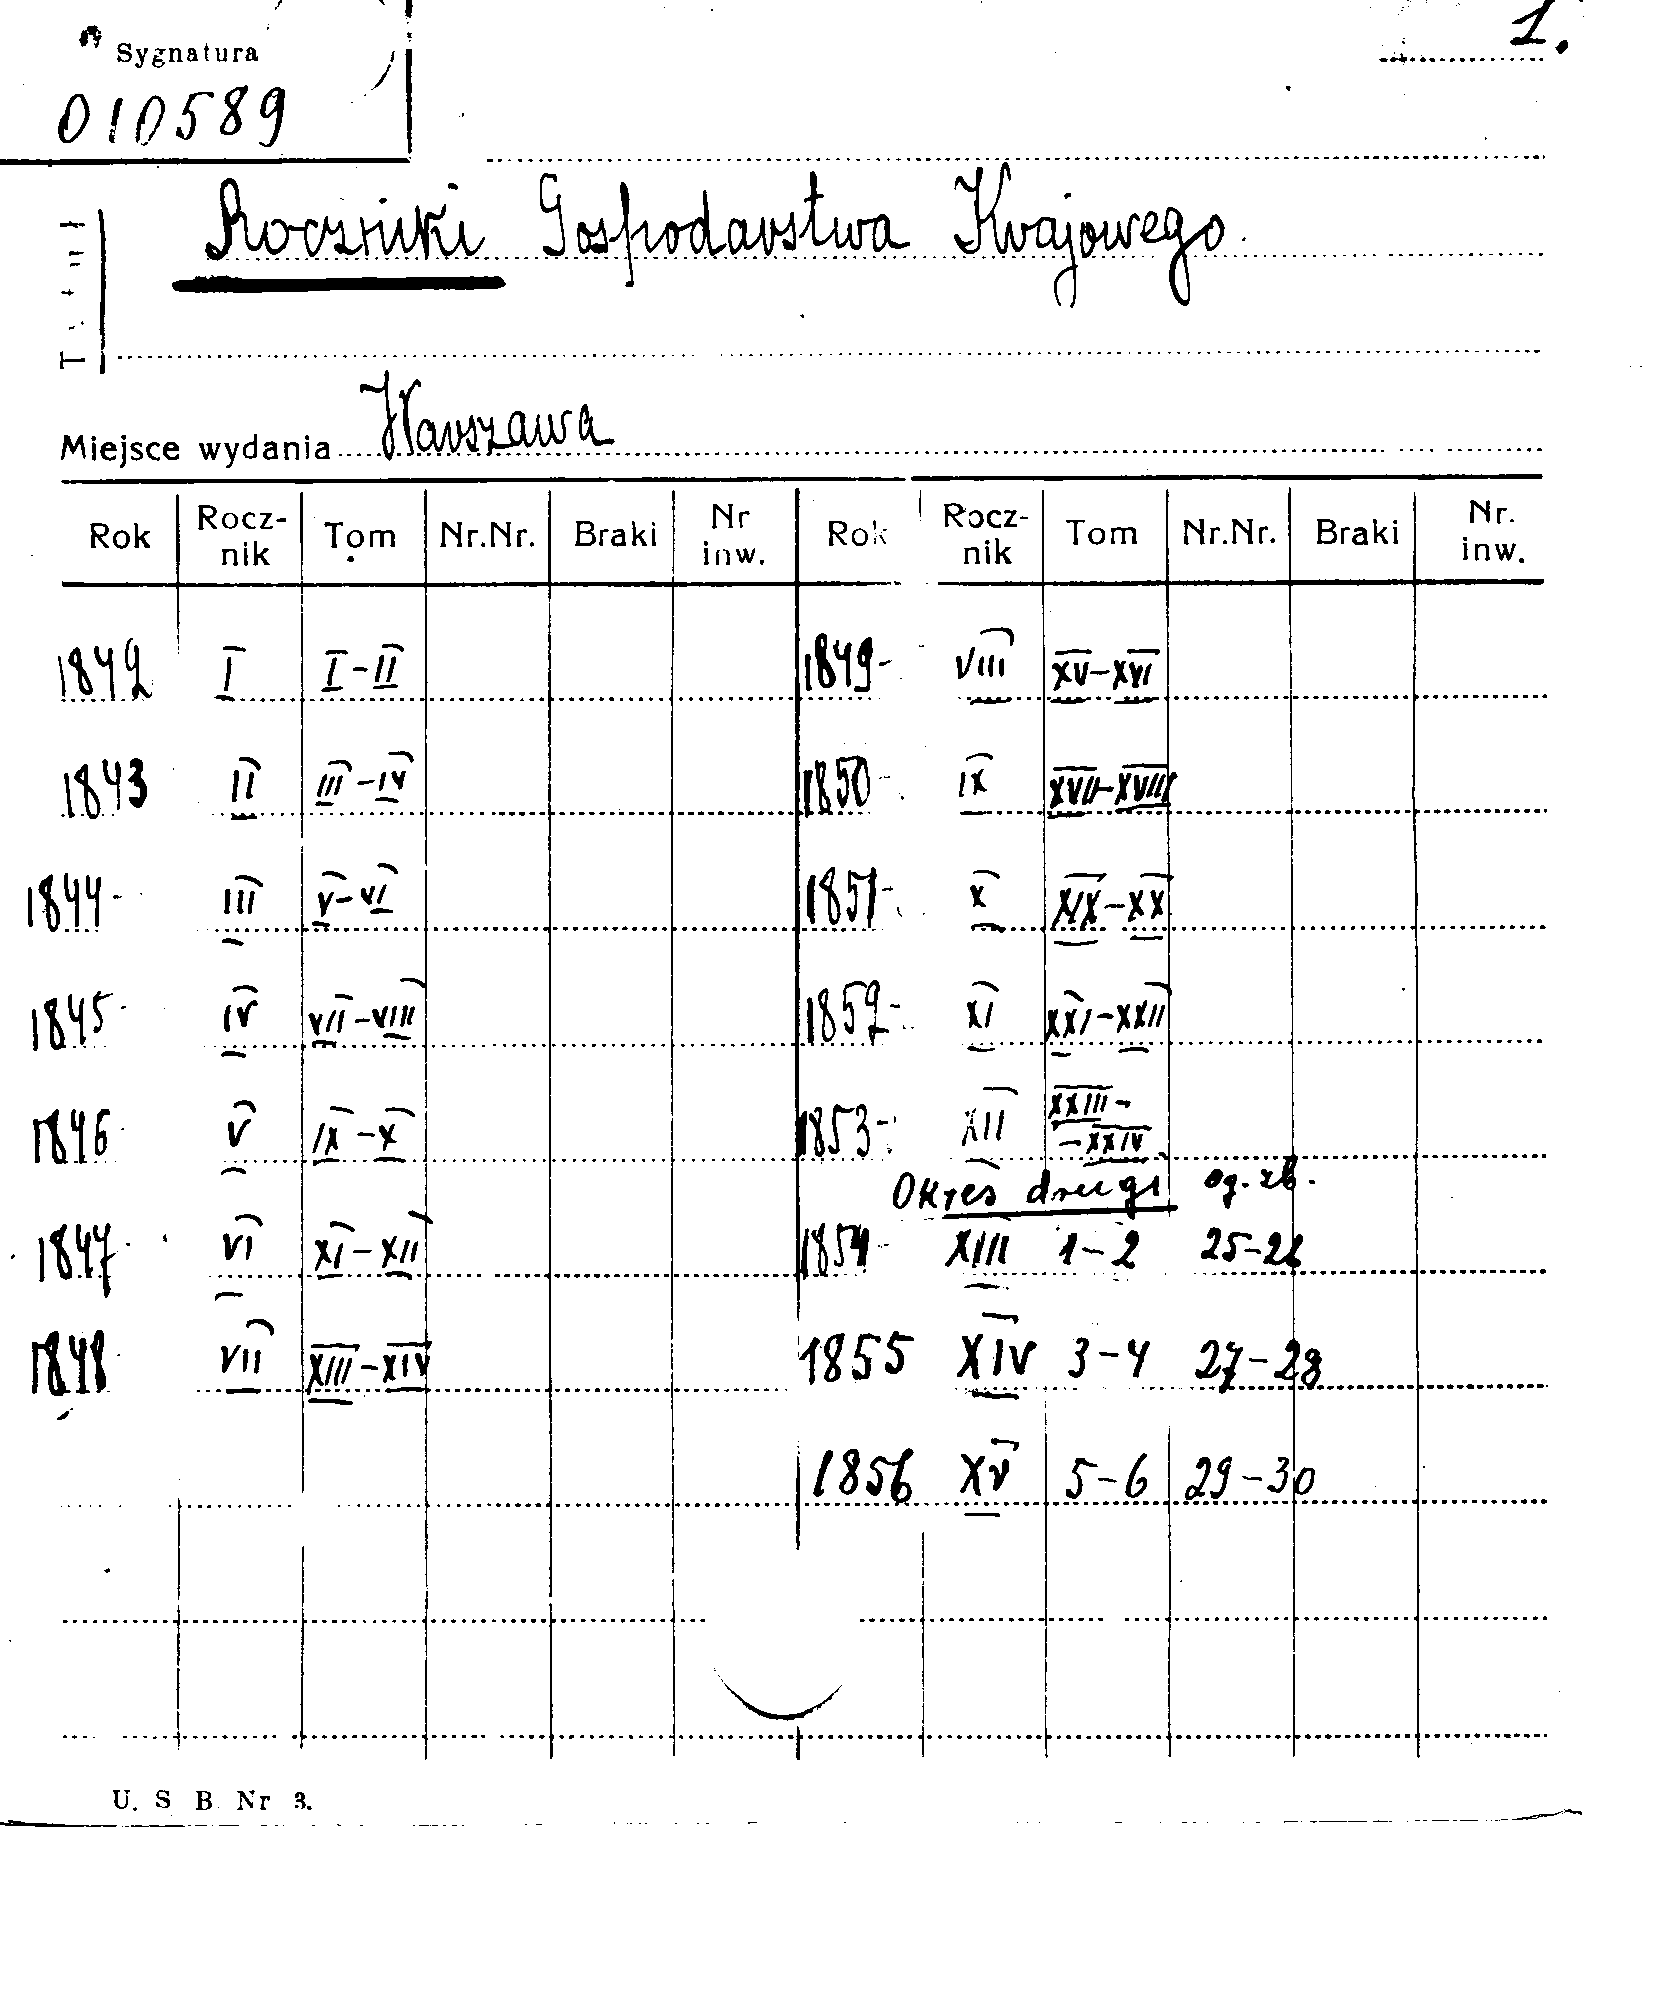 1.
Sygnatura
010589
Roczniki Gospodarstwa Krajowego.
Miejsce wydania Warszawa
Rok Rocz-nik Tom Nr.Nr. Braki Nr inw. Rok Rocz-nik Tom Nr.Nr. Braki Nr. inw.
1842 I I-II 1849- VIII XV-XVI
1843 II III-IV 1850- IX XVII-XVIII
1844- III V-VI 1851- X XIX-XX
1845- IV VII-VIII 1852- XI XXI-XXII
1846 V IX-X 1853- XII XXIII--XXIV
Okres drugi og. zb.
1847 VI XI-XII 1854- XIII 1-2 25-26
1848 VII XIII-XIV 1855 XIV 3-4 27-28
1856 XV 5-6 29-30
U. S B Nr 3.